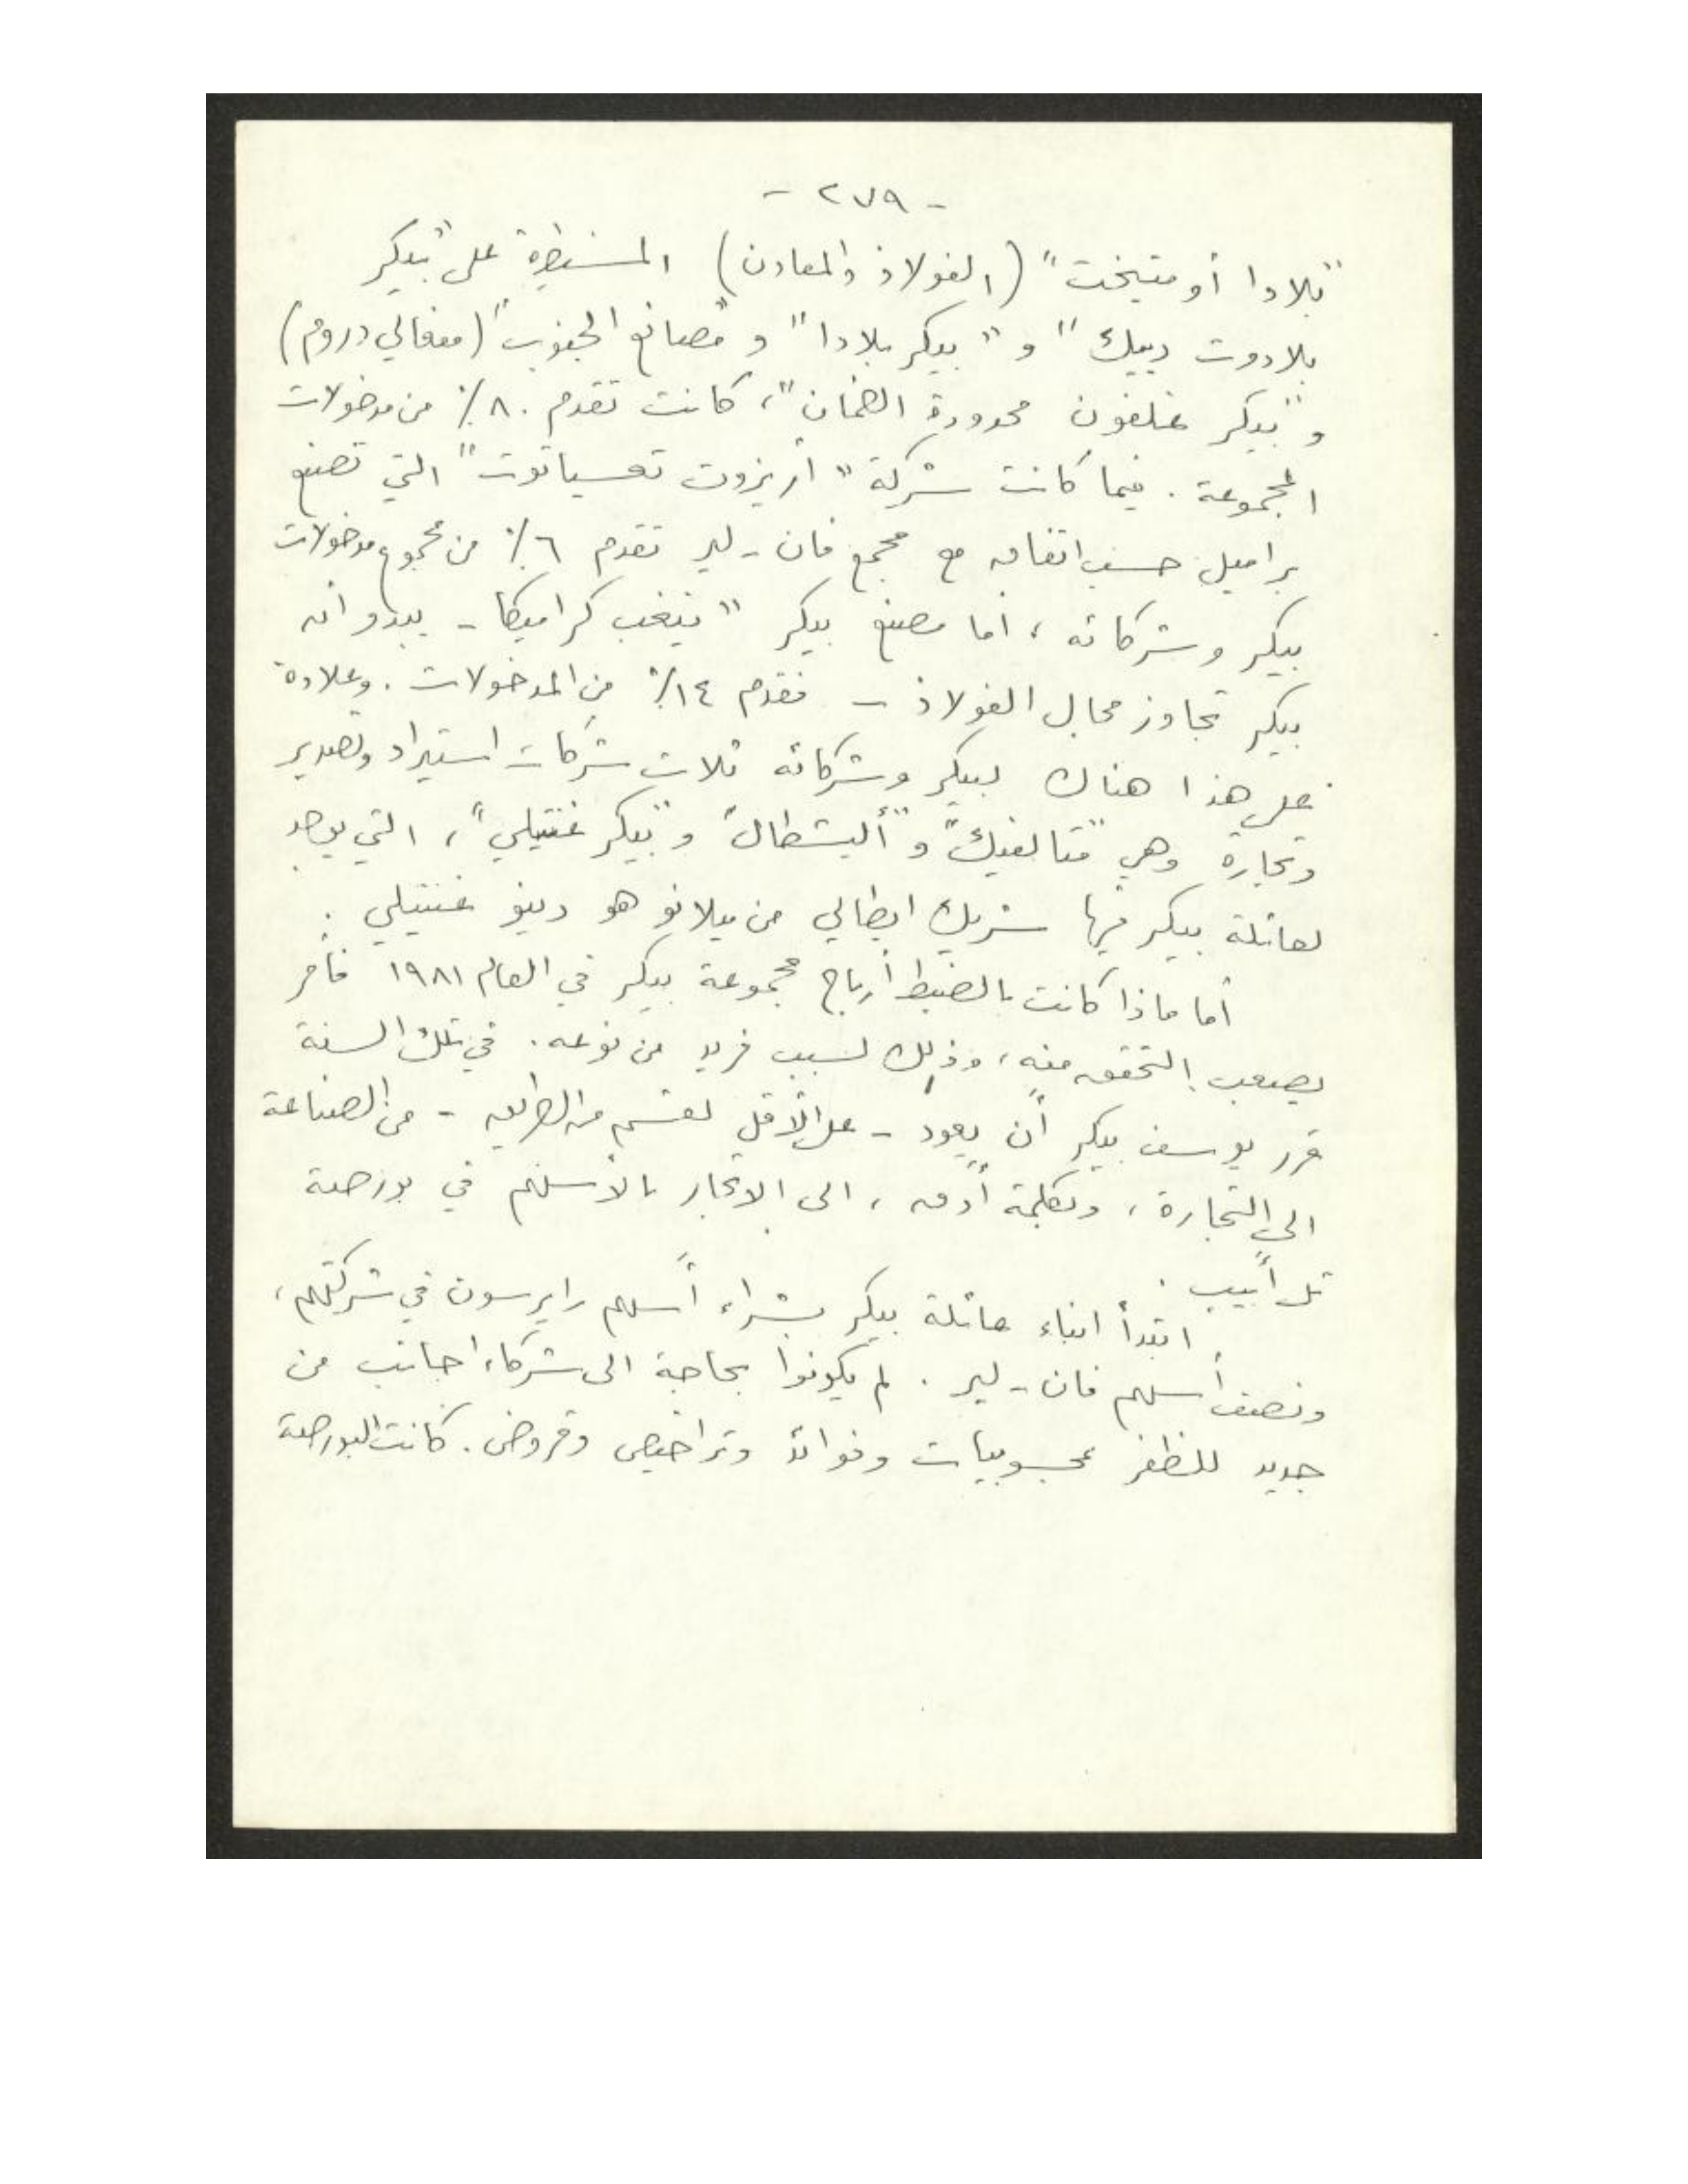 - ٢٧٩ -
"بلادا أو متيخت" (الفولاذ والمعادن) المسيطرة على "بيكر
بلادوت دبيك" و "بيكر بلادا" و "مصانع الجنوب" (مفعالي دروم)
و "بيكر غلفون محدودة الضمان"، كانت تقدم ٨٠٪ من مدخولات
المجموعة. فيما كانت شركة "أريزوت تعسياتوت" التي تصنع
براميل حسب اتفاق مع مجمع فان - لير تقدم ٦٪ من مجموع مدخولات
بيكر وشركائه، أما مصنع بيكر "نيغب كراميكا - يبدو أن
بيكر تجاوز مجال الفولاذ - فقدم ١٤٪ من المدخولات. وعلاوة
على هذا هناك لبيكر وشركائه ثلاث شركات استيراد وتصدير
وتجارة وهي "متالفيك" و "أليشطال" و "بيكر غنتيلي"، التي يوجد
لعائلة بيكر فيها شريك ايطالي من ميلانو هو دينو غنتيلي.
أما ماذا كانت بالضبط أرباح مجموعة بيكر في العام ١٩٨١ فأمر
يصعب التحقق منه، وذلك لسبب فريد من نوعه. في تلك السنة
قرر يوسف بيكر أن يعود - على الأقل لقسم من الطريق - من الصناعة
الى التجارة، وبكلمة أدق، الى الاتجار بالأسهم في بورصة
تل أبيب.
ابتدأ ابناء عائلة بيكر بشراء أسهم رايرسون في شركتهم،
ونصف أسهم فان - لير. لم يكونوا بحاجة الى شركاء اجانب من
جديد للظفر بمحسوبيات وفوائد وتراخيص وقروض. كانت البورصة